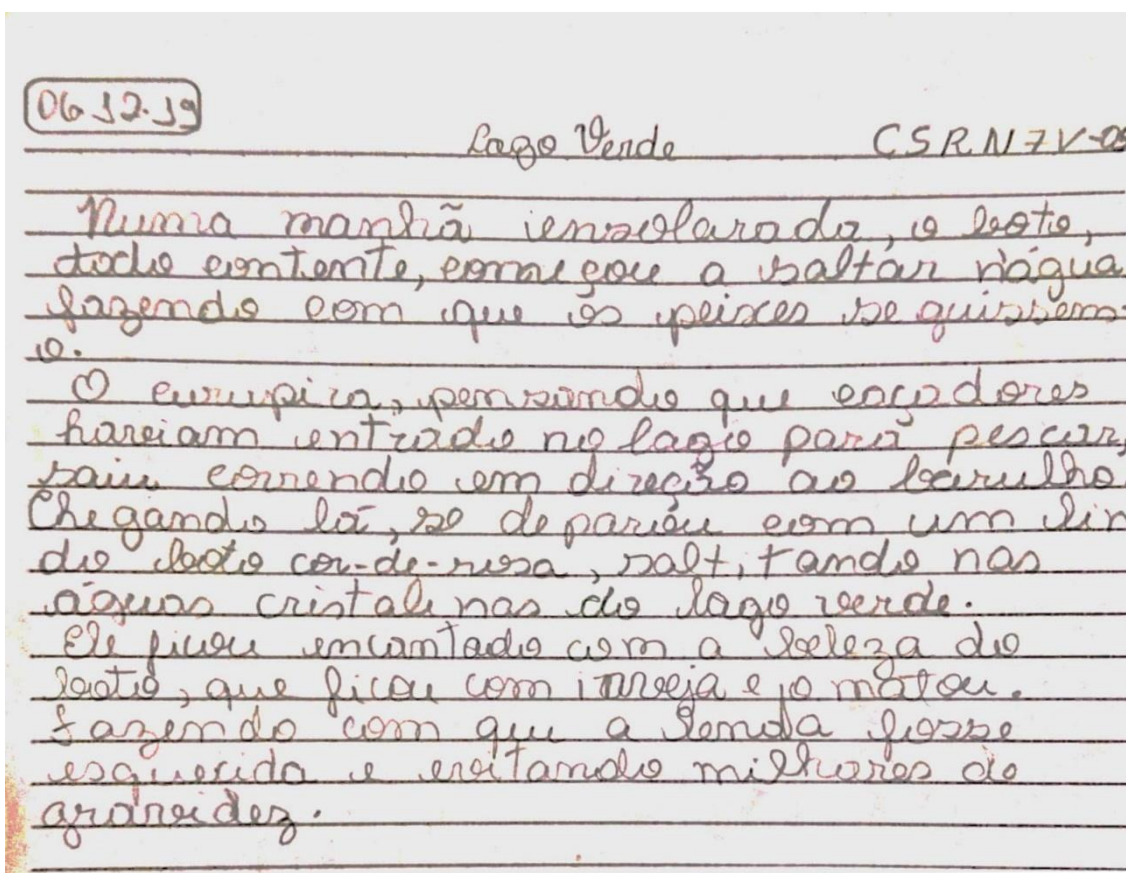 06.12.19
Lago Verde CSRN7V-05
Numa manhã ensolarada, o boto,
todo contente, começou a saltar n'água
fazendo com que os peixes se
o.
O curupira, pensando que caçadores
haviam entrado no lago para pescar,
saiu correndo em direção ao barulho.
Chegando lá, se deparou com um lin
do boto cor-de-rosa, saltitando nas
águas cristalinas do lago verde.
Ele ficou encantado com a beleza do
boto, que ficou com inveja e o matou.
Fazendo com que a lenda fosse
esquecida e evitando milhares de
gravidez.